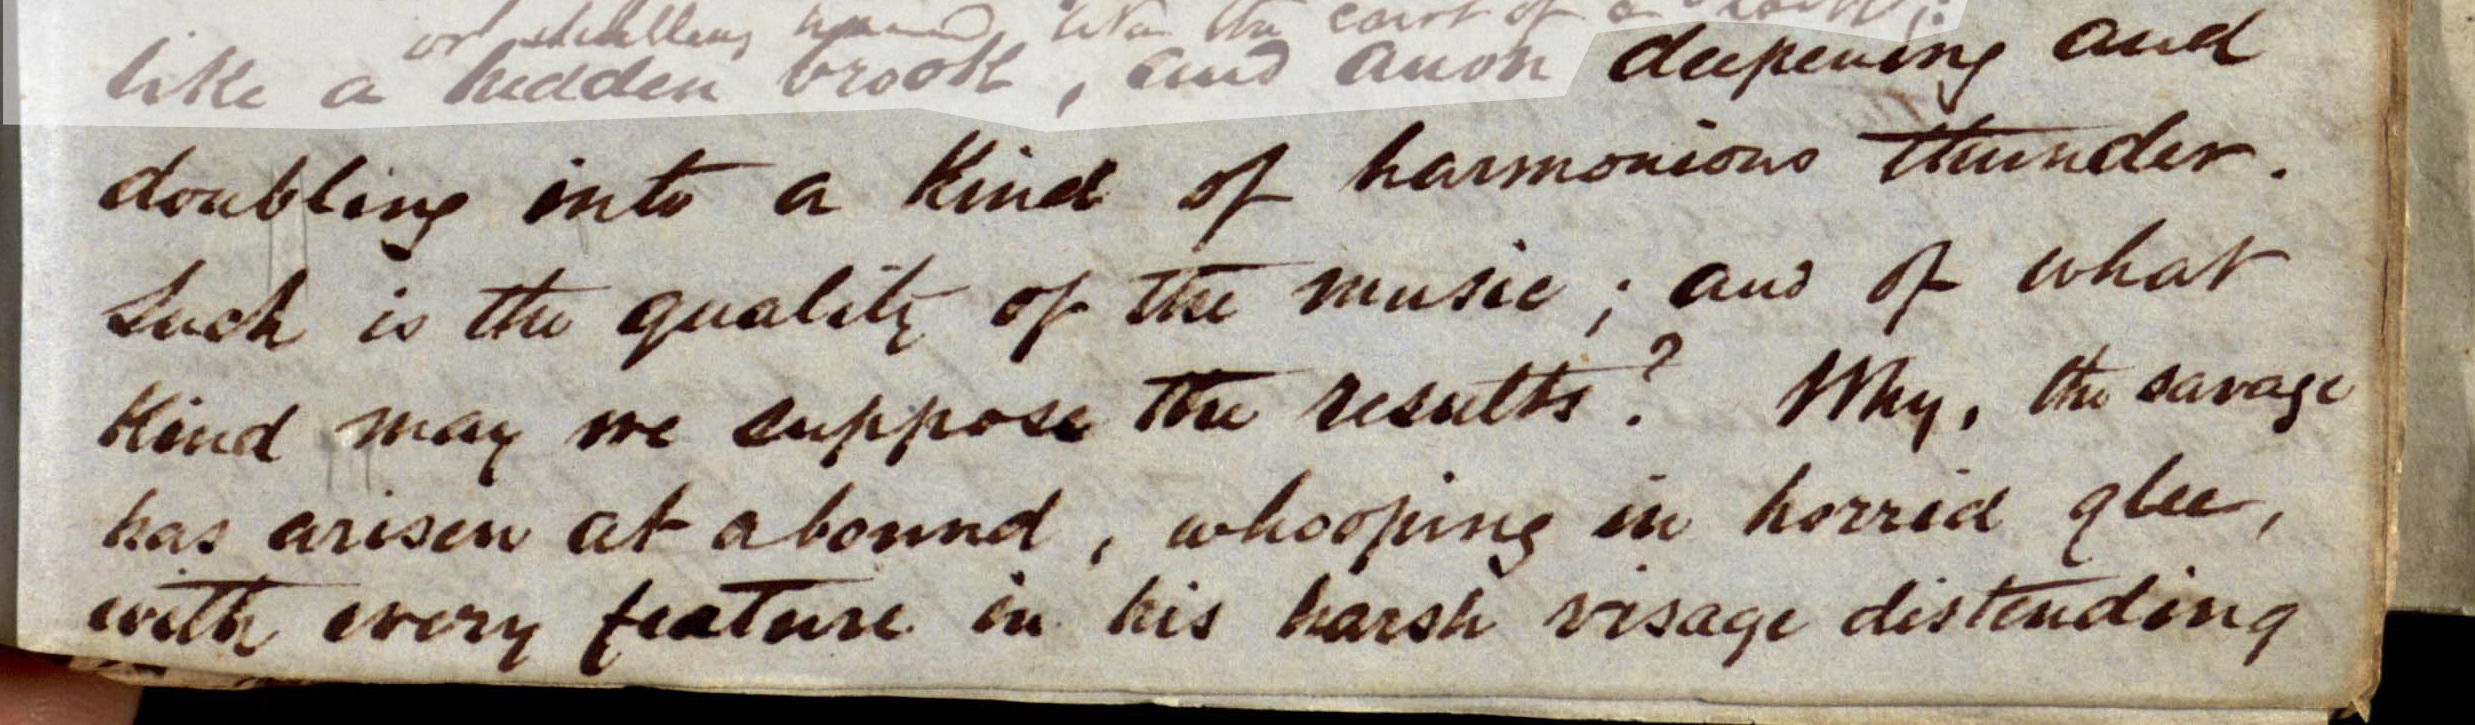 like a hidden brook, and anon deepening and
doubling into a kind of harmonious thunder.
Such is the quality of the music; and of what
kind may we suppose the results? Why, the savage
has arisen at a bound, whooping in horrid glee,
with every feature in his harsh visage distending